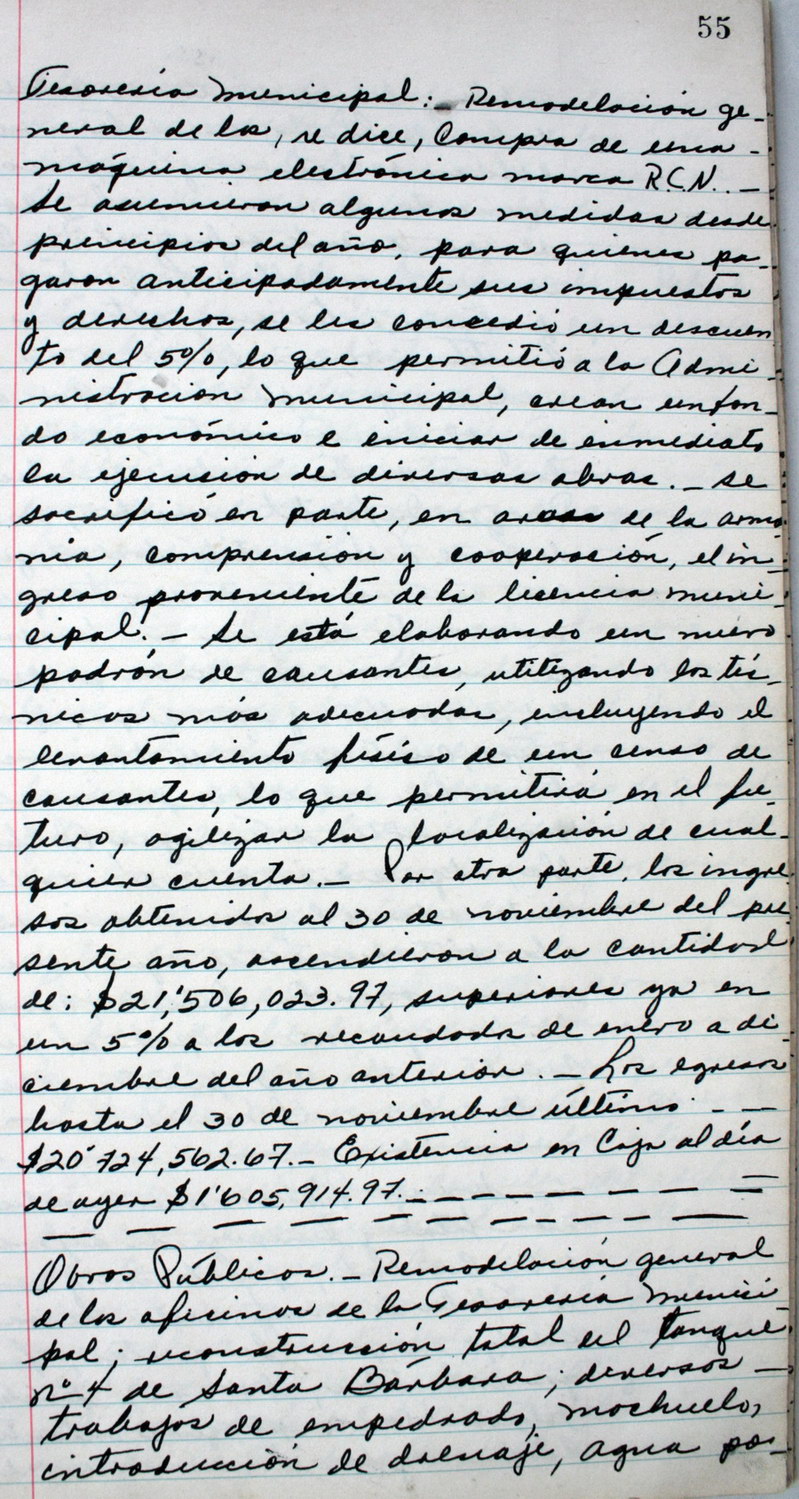 55
Tesorería Municipal: Remodelación ge-
neral de las, se dice, Compra de una -
máquina electrónica marca R.C.N.. -
Se asumieron algunas medidas desde
principios del año, para quienes pa-
garon anticipadamente sus impuestos
y derechos, se les concedió un descuen
to del 5%, lo que permitió a la Admi-
nistración Municipal, crean un fon-
do económico e iniciar de inmediato
la ejecusión de diversas obras. - Se
sacrificó en parte, en aras de la armo
nía, comprensión y cooperación, el in-
greso proveniente de la licencia muni-
cipal. - Se está elaborando un nuevo
padrón de causantes, utilizando los téc-
nicos más adecuados, incluyendo el
levantamiento físico de un censo de
causantes, lo que permitirá en el fu-
turo, agilizar la localización de cual-
quier cuenta. - Por otra parte, los ingre-
sos obtenidos al 30 de noviembre del pre-
sente año, ascendieron a la cantidad
de: $21,'506,023.97, superiores ya en
un 5% a los recaudados de enero a di-
ciembre del año anterior. - Los egresos
hasta el 30 de noviembre último - -
$20'724,562.67. - Existencia en Caja al día
de ayer $1'605,914.97. - - - - - - - -
- - - - - - - - - - -
Obras Públicas. - Remodelación general
de las oficinas de la Tesorería Munici
pal; reconstrucción total del tanque
nº 4 de Santa Bárbara; diversos -
trabajos de empedrado, mochuelo,
introducción de drenaje, agua po-